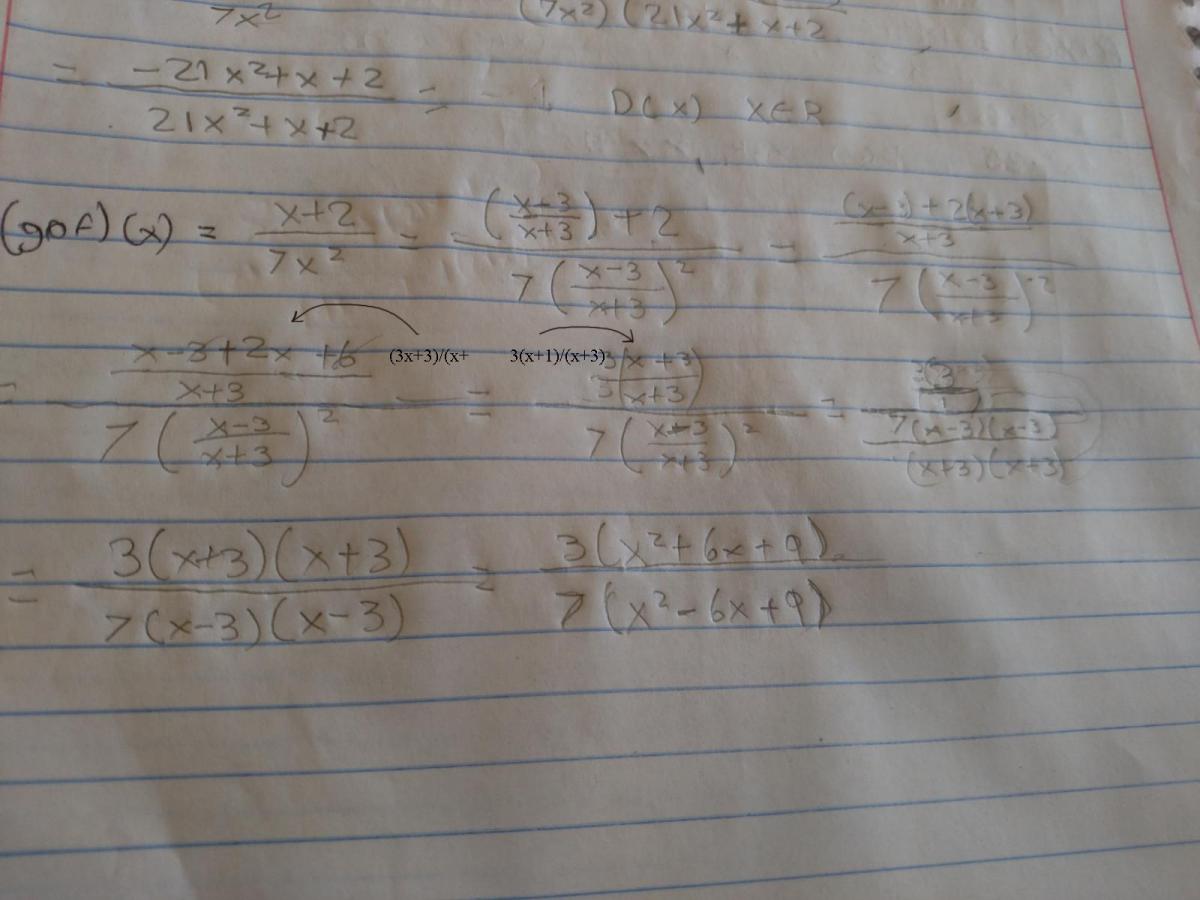 7x² (7x²)(21x²+x+2
= -21x²+x+2 / 21x²+x+2 = -1 D(x) x∈R
(gof)(x) = x+2 / 7x² = ((x+3)/(x+3))+2 / 7((x-3)/(x+3))² = ((x-3)+2(x+3))/(x+3) / 7((x-3)/(x+3))²
= (x-3+2x+6)/(x+3) / 7((x-3)/(x+3))² (3x+3)/(x+ = 3(x+1)/(x+3) 3(x+3)/3(x+3) / 7((x-3)/(x+3))² = (3)/1 / 7(x-3)(x-3)/(x+3)(x+3)
= 3(x+3)(x+3) / 7(x-3)(x-3) = 3(x²+6x+9) / 7(x²-6x+9)